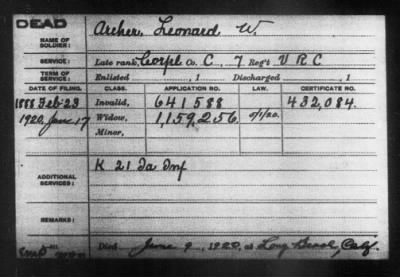 DEAD
NAME OF SOLDIER: Archer, Leonard W.
SERVICE: Late rank, Corpl Co. C, 7 Reg't V R C
TERM OF SERVICE: Enlisted , 1 Discharged , 1
DATE OF FILING. CLASS. APPLICATION NO. LAW. CERTIFICATE NO.
1888 Feb 23 Invalid, 641588 432,084.
1920, June 17 Widow, 1,159,256 5/1/20.
Minor,
ADDITIONAL SERVICES: K 21 Ia Inf
REMARKS:
Died June 9, 1920, at Long Beach, Calif.